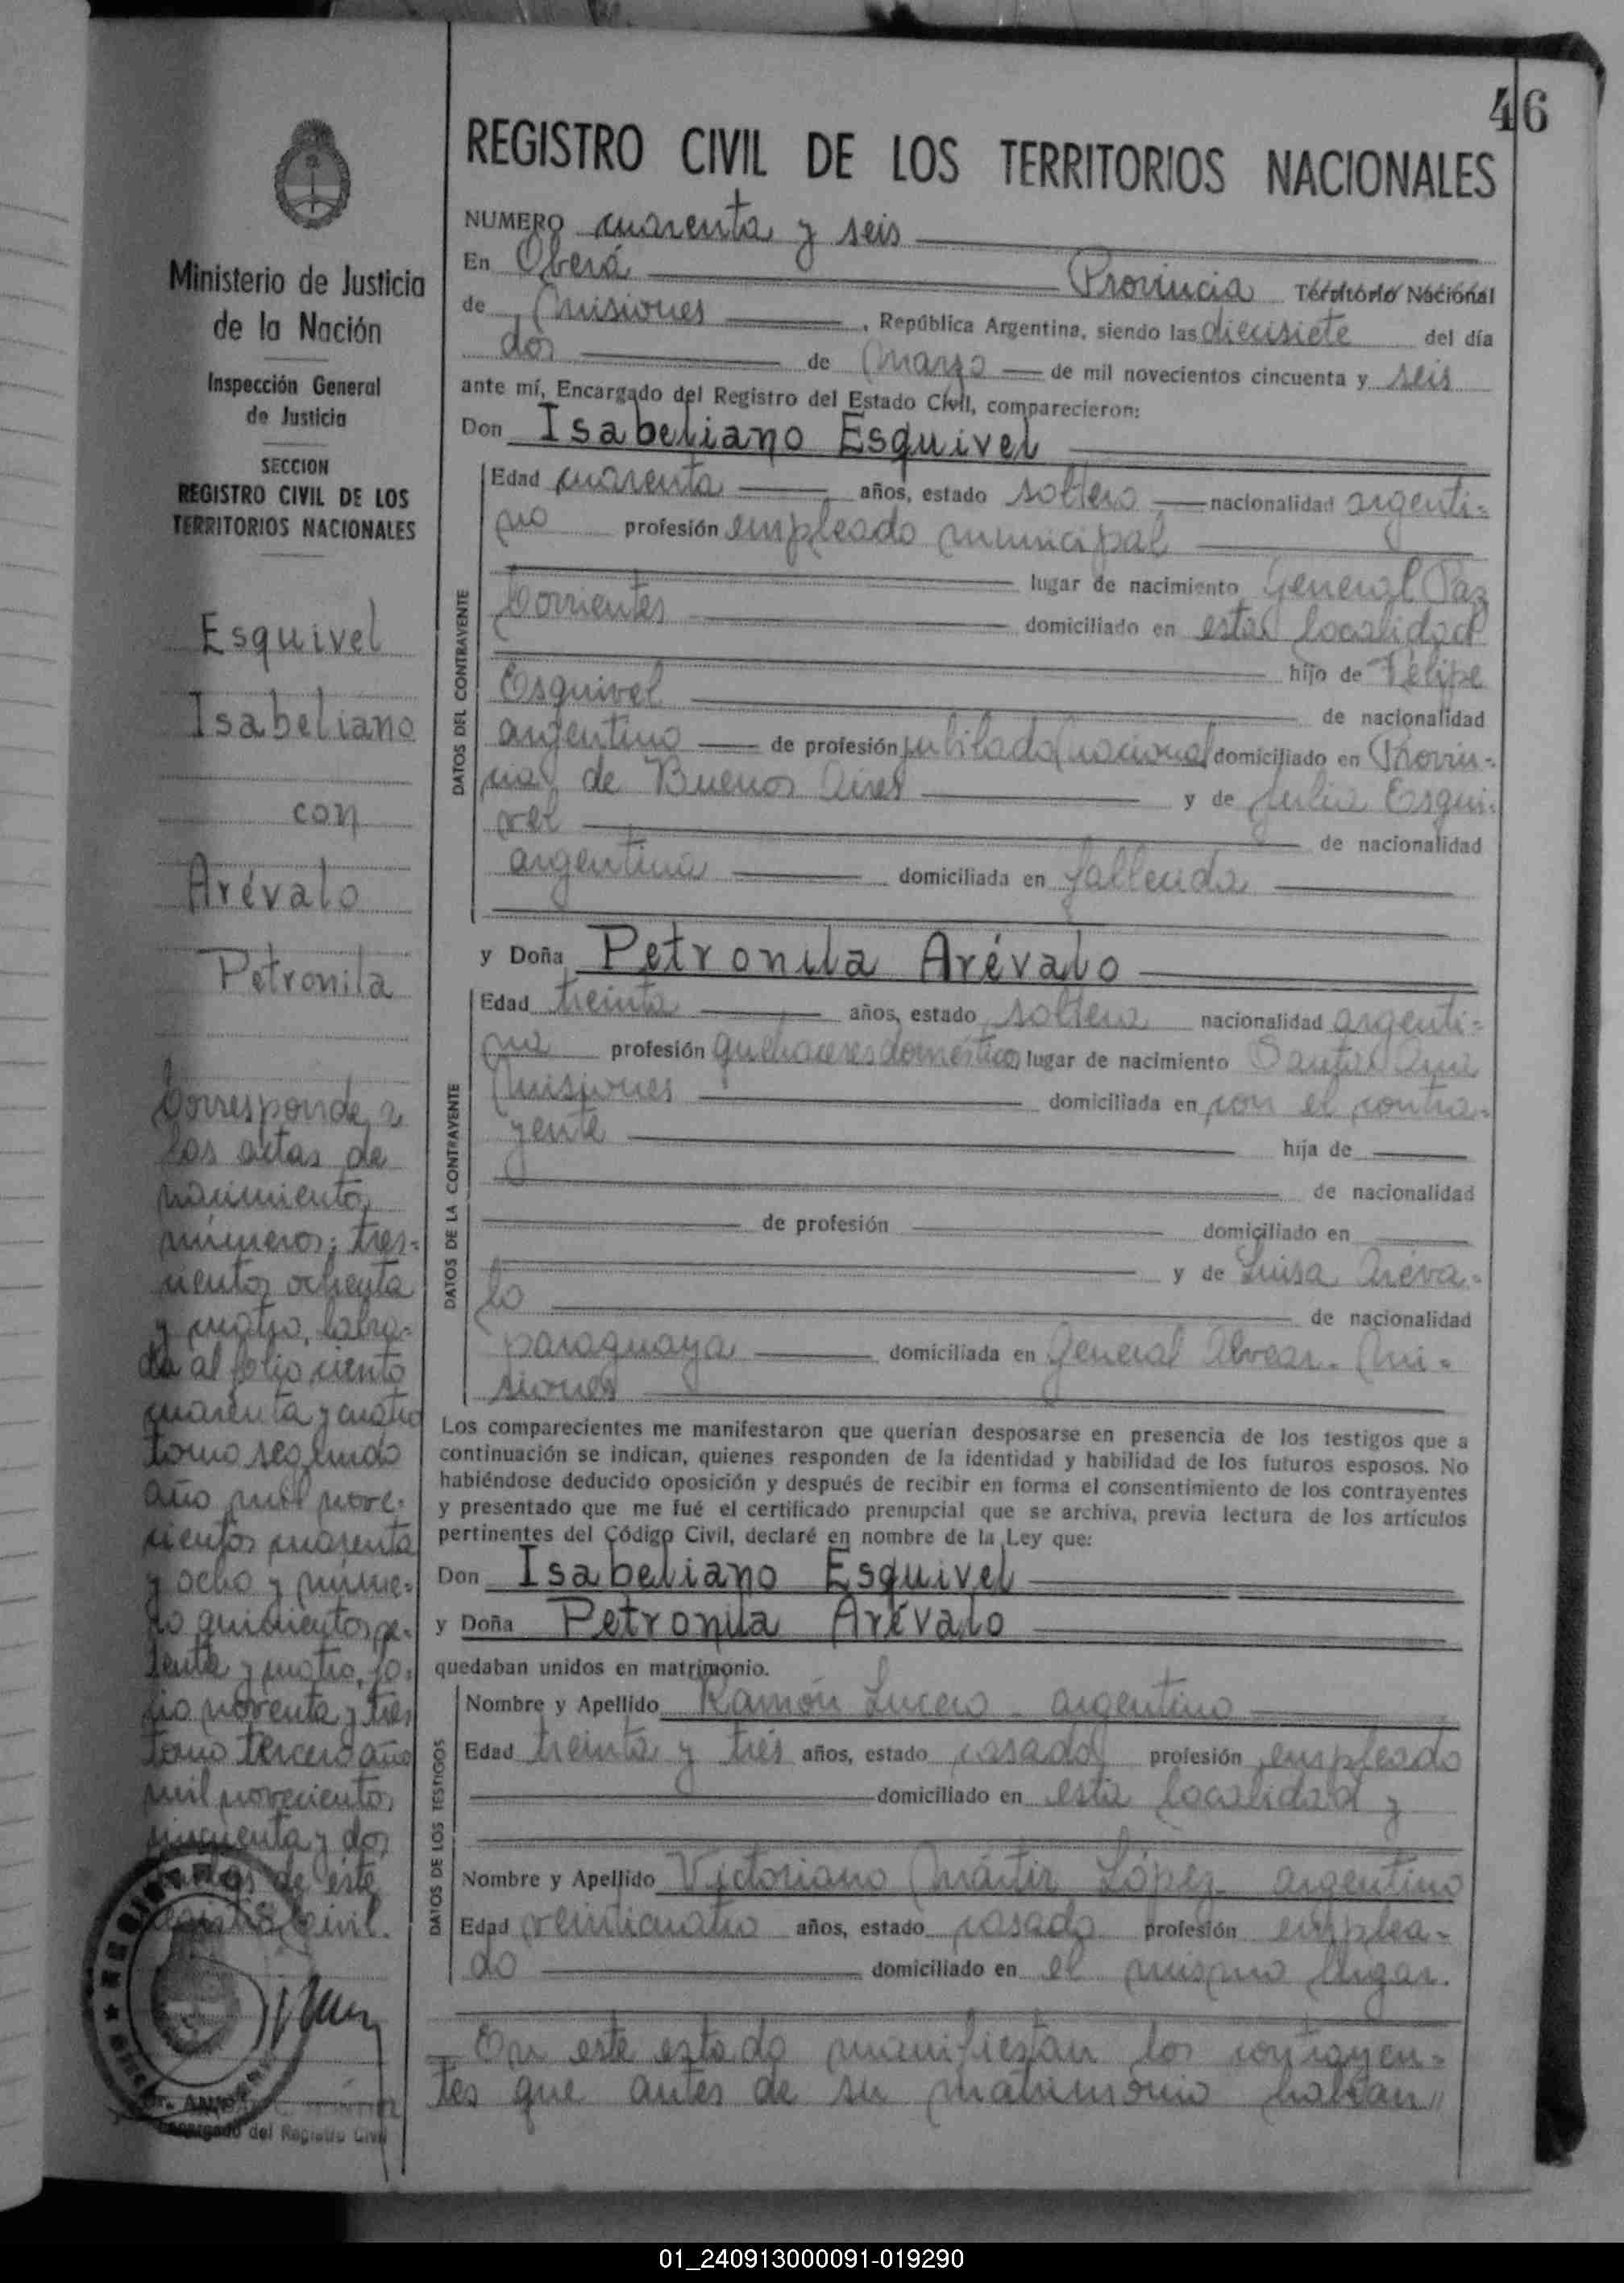 46
REGISTRO CIVIL DE LOS TERRITORIOS NACIONALES
NUMERO cuarenta y seis
En Oberá Provincia Territorio Nacional
de Misiones, República Argentina, siendo las diecisiete del día
dos de Marzo de mil novecientos cincuenta y seis
ante mí, Encargado del Registro del Estado Civil, comparecieron:
Don Isabeliano Esquivel
DATOS DEL CONTRAYENTE
Edad cuarenta años, estado soltero nacionalidad argenti=
no profesión empleado municipal
lugar de nacimiento General Paz
Corrientes domiciliado en esta localidad
hijo de Felipe
Esquivel de nacionalidad
argentino de profesión jubilado nacional domiciliado en Provin=
cia de Buenos Aires y de Julia Esqui=
vel de nacionalidad
argentina domiciliada en fallecida
y Doña Petronila Arévalo
DATOS DE LA CONTRAYENTE
Edad treinta años, estado soltera nacionalidad argenti=
na profesión quehaceres domésticos lugar de nacimiento Santa Ana
Misiones domiciliada en con el contra=
yente hija de
de nacionalidad
de profesión domiciliado en
y de Luisa Aréva=
lo de nacionalidad
paraguaya domiciliada en General Alvear. Mi=
siones
Los comparecientes me manifestaron que querían desposarse en presencia de los testigos que a
continuación se indican, quienes responden de la identidad y habilidad de los futuros esposos. No
habiéndose deducido oposición y después de recibir en forma el consentimiento de los contrayentes
y presentado que me fué el certificado prenupcial que se archiva, previa lectura de los artículos
pertinentes del Código Civil, declaré en nombre de la Ley que:
Don Isabeliano Esquivel
y Doña Petronila Arévalo
quedaban unidos en matrimonio.
DATOS DE LOS TESTIGOS
Nombre y Apellido Ramón Lucero - argentino
Edad treinta y tres años, estado casado profesión empleado
domiciliado en esta localidad y
Nombre y Apellido Victoriano Mártir López - argentino
Edad veinticuatro años, estado casado profesión emplea=
do domiciliado en el mismo lugar.
En este estado manifiestan los contrayen=
tes que antes de su matrimonio habían
Ministerio de Justicia
de la Nación
Inspección General
de Justicia
SECCION
REGISTRO CIVIL DE LOS
TERRITORIOS NACIONALES
Esquivel
Isabeliano
con
Arévalo
Petronila
Corresponde a
las actas de
nacimiento
números: tres=
cientos ochenta
y cuatro, labra=
da al folio ciento
cuarenta y cuatro
tomo segundo
año mil nove=
cientos cuarenta
y ocho y núme=
ro quinientos se=
tenta y cuatro, fo=
lio noventa y tres
tomo tercero año
mil novecientos
cincuenta y dos
de este
Registro Civil.
Encargado del Registro Civil
01_240913000091-019290